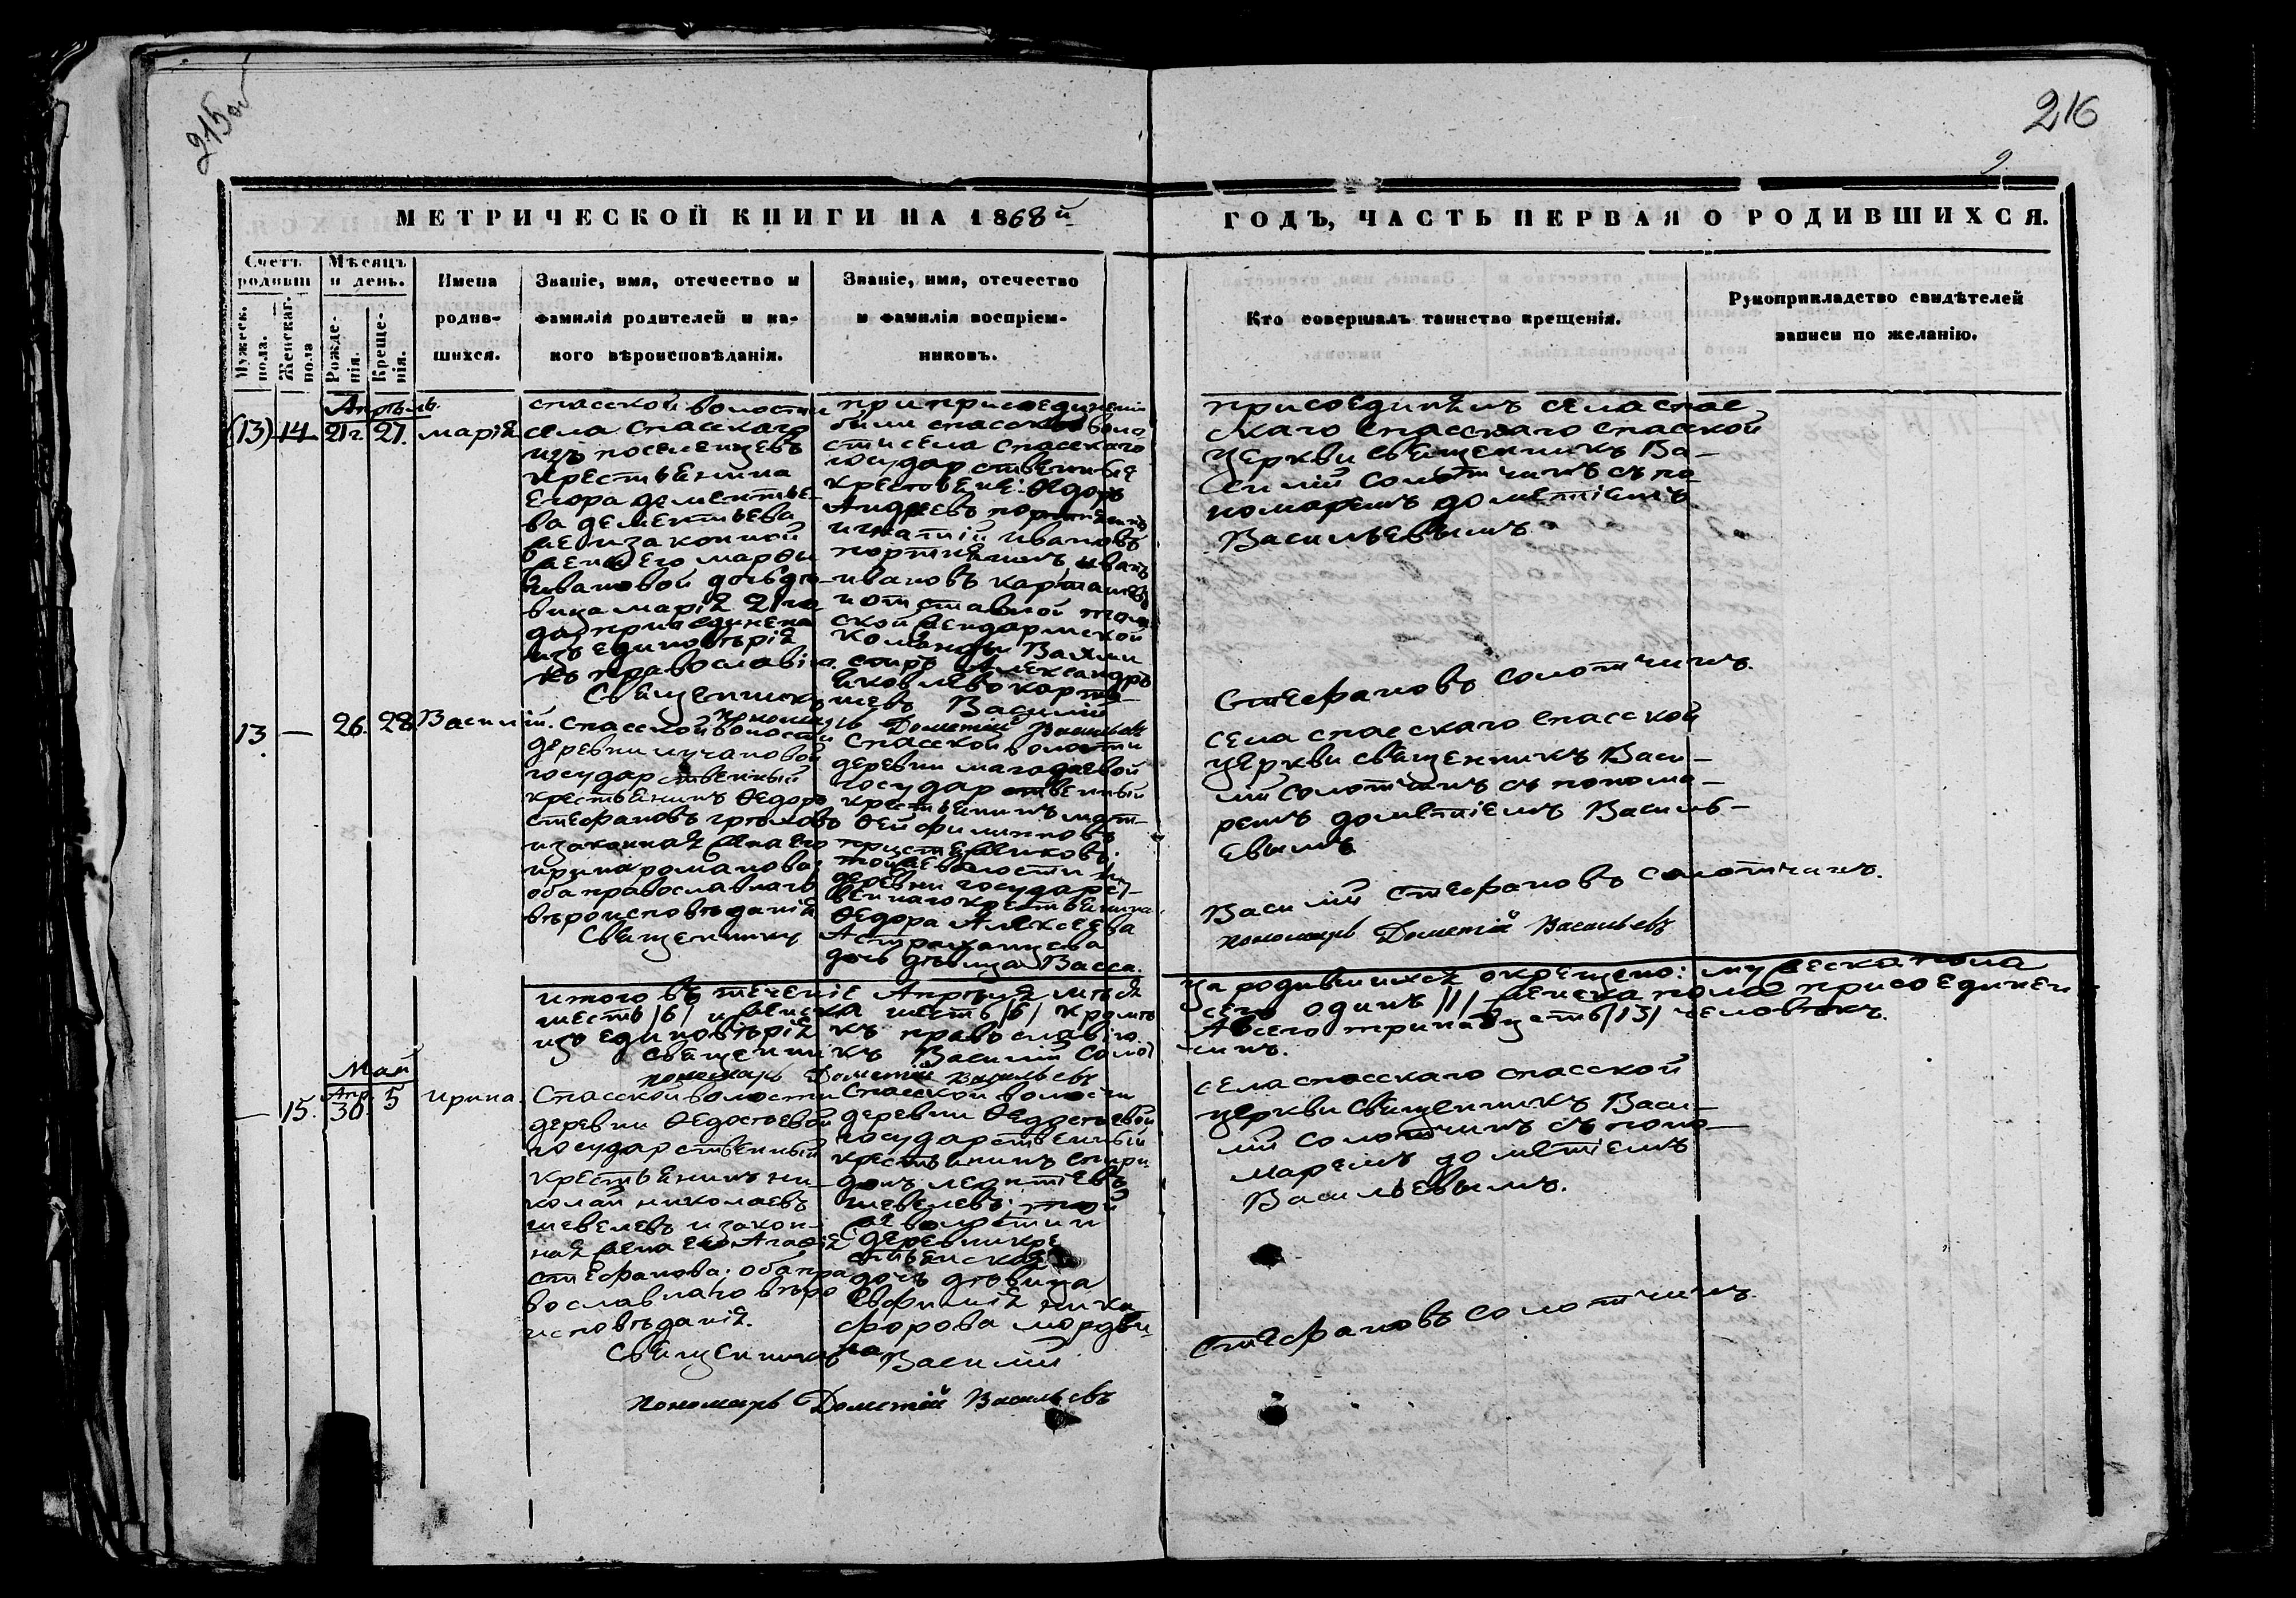 215об
216
9.
МЕТРИЧЕСКОЙ КНИГИ НА 1868й
ГОДЪ, ЧАСТЬ ПЕРВАЯ О РОДИВШИХСЯ.
Счетъ родивш
Мужеск. пола.
Женскаг. пола
Мѣсяцъ и день.
Рожде-нія.
Креще-нія.
Имена
родив-
шихся.
Званіе, имя, отечество и
фамилія родителей и ка-
кого вѣроисповѣданія.
Званіе, имя, отечество
и фамилія воспріем-
никовъ.
Кто совершалъ таинство крещенія.
Рукоприкладство свидѣтелей
записи по желанію.
Апрѣль.
(13) 14 21г. 27. Марія
спасской волости
села спасскаго
изъ поселенцевъ
крестьянина
Егора дементье-
ва дементьева
и законной
жены его Марѳы
Ивановой дочь дѣ-
вица Марія 21 го
да присоединена
изъ единовѣрія
къ православію.
Священникъ
при присоединеніи
были спасской воло-
сти села спасскаго
государственные
крестьяне: Ѳедоръ
Андреевъ портнягинъ
игнатій ивановъ
портнягинъ, иванъ
ивановъ карташевъ
и отставной том-
ской жендармской
команды Вахми
стръ Александръ
Яковлевъ карта-
шевъ Василій
пономарь Дометій Васильевъ
присоединялъ села спас
скаго спасскаго спасской
церкви священникъ Ва-
силій солотчинъ съ по-
номаремъ дометіемъ
Васильевымъ.
Стефановъ солотчинъ.
13. — 26. 28. Василій.
спасской волости
деревни лучановой
государственный
крестьянинъ Ѳедоръ
стефановъ громовъ
и законная жена его
ирина романова;
оба православнаго
вѣроисповѣданія
Священникъ
спасской волости
деревни магадаевой
государственный
крестьянинъ мат-
ѳей филипповъ
тойже волости и
деревни государст-
веннаго крестьянина
Ѳедора Алексеева
Астраханцева
дочь дѣвица Васса.
села спасскаго спасской
церкви священникъ Васи-
лій солотчинъ съ понома-
ремъ дометіемъ Василь-
евымъ
Василій стефановъ солотчинъ.
пономарь Дометій Васильевъ
итого въ теченіе Апрѣля мѣся
ца родившихся окрещено: мужеска пола
шесть /6/ и женска шесть /6/ кромѣ
сего одинъ /1/ женска пола присоединен
изъ единовѣрія къ православію.
А всего тринадцать /13/ человѣкъ.
священникъ Василій Солот
чинъ.
пономарь Дометій Васильевъ
Май
— 15. Апр. 30. 5 Ирина.
Спасской волости
деревни Ѳедосѣевой
государственный
крестьянинъ ни-
колай николаевъ
шевелевъ и закон-
ная жена его Агафія
стефанова; оба пра
вославнаго вѣро
исповѣданія.
Священникъ
Спасской волости
деревни Ѳедосѣевой
государственный
крестьянинъ спири-
донъ леонтіевъ
шевелевъ; той
же волости и
деревни кре
стьянская
дочь дѣвица
Евфимія ники
форова мордви-
на Василій
пономарь Дометій Васильевъ
села спасскаго спасской
церкви Священникъ Васи-
лій солотчинъ съ поно-
маремъ дометіемъ
Васильевымъ.
Стефановъ солотчинъ.